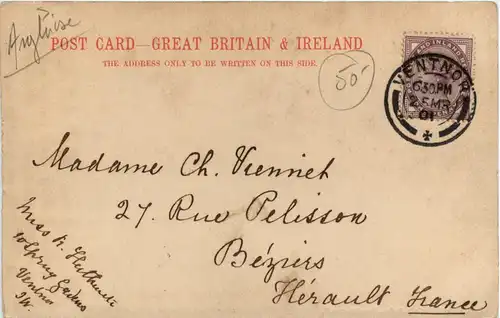 Anglaise
POST CARD—GREAT BRITAIN & IRELAND
THE ADDRESS ONLY TO BE WRITTEN ON THIS SIDE.
50
VENTNOR
6.30PM
25MR
01
Madame Ch. Viennet
27. Rue Pelisson
Béziers
Hérault France
Miss
Spring Gardens
Ventnor
I.W.